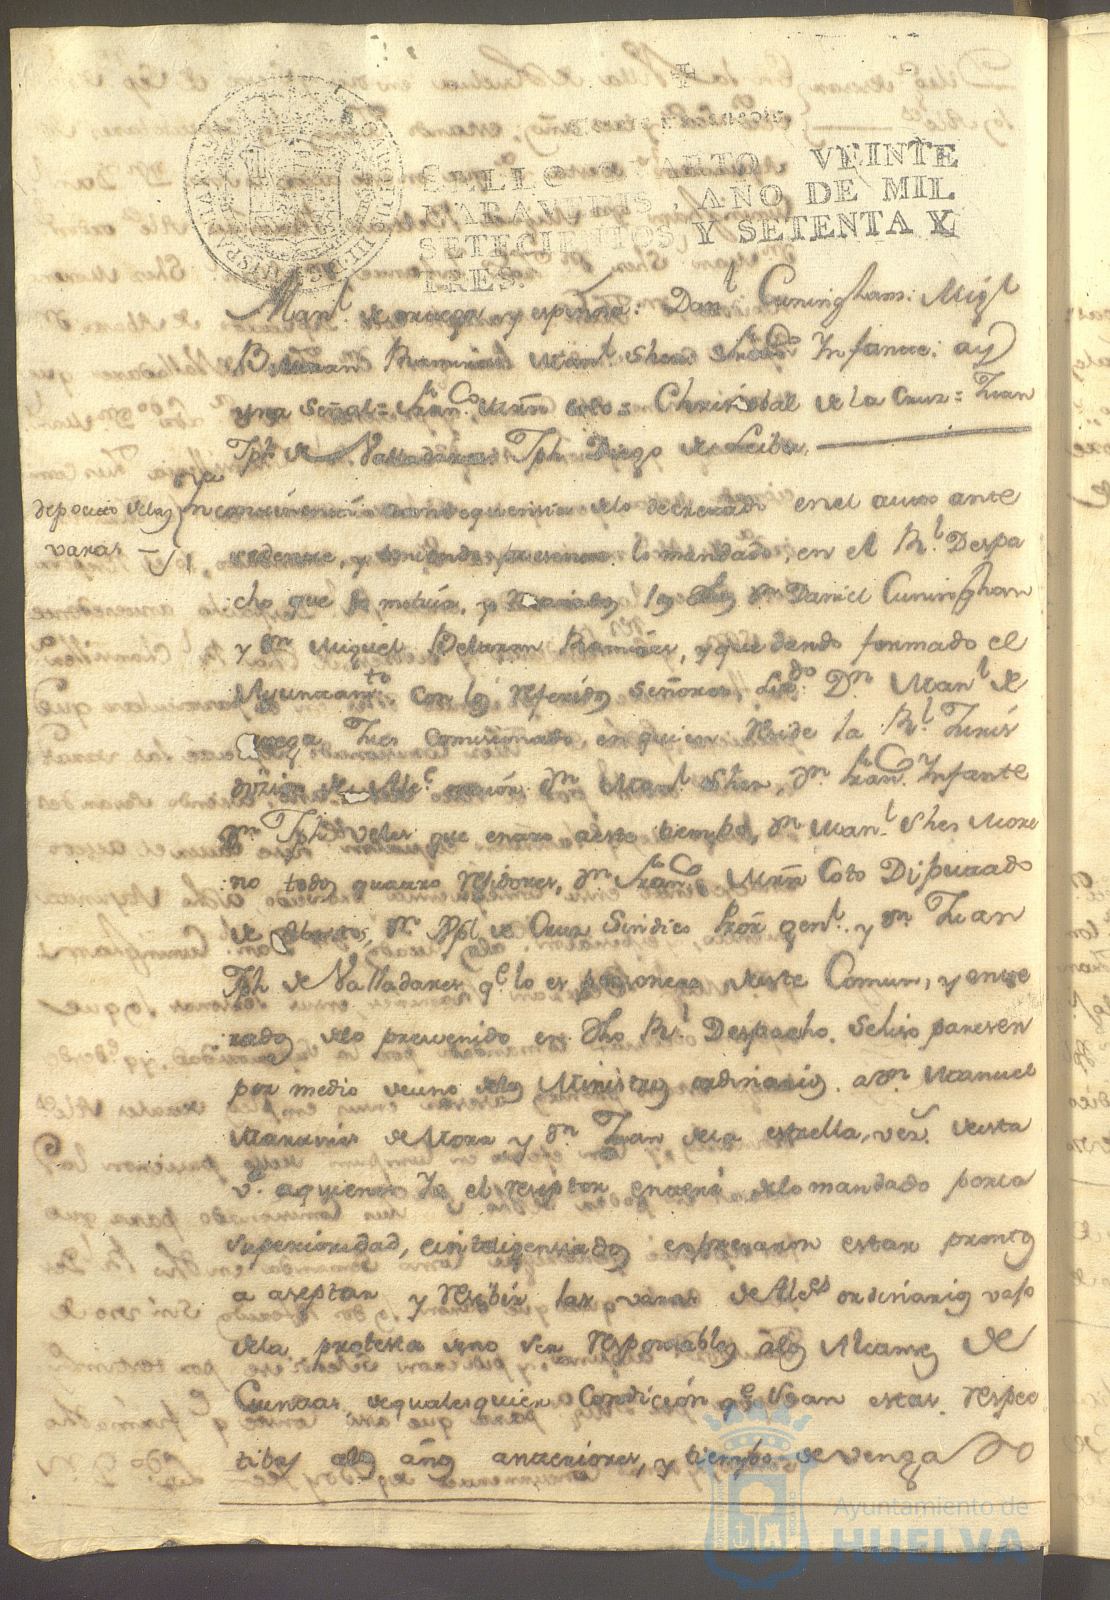 SELLO QUARTO, VEINTE
MARAVEDIS, AÑO DE MIL
SETECIENTOS Y SETENTA Y
TRES.
Man.l de ortega y espinosa: Dan.l Cuningham: Mig.l
Beltran Ramirez Man.l Shes Fran.co Infante: ay
una Señal = Fran.co Mrñ Coto = Christobal de la Cruz = Juan
Jph de Valladares Jph Diego de Leiba.
deposito delas
varas
en consequensia delo decretado en el auto ante
cedente, y teniendo presente lo mandado, en el R.l Despa
cho que lo motiva, y los Sres Dn Daniel Cuningham
y Dn Miguel Beltran Ramires, y quedando formado el
Ayuntam.to con los referidos Señores, Lizdo Dn Man.l de
ortega Jues Comisionado, en quien reside la R.l Juris
dizion Dn Man.l Shes, Dn Fran.co Infante
Dn Jph Veles que entro a este tiempo, Dn Man.l Shes More
no todos quatro residores, Dn Fran.co Mrñ Coto Diputado
de Abastos, Dn Xpl de Cruz Sindico Pror gen.l y Dn Juan
Jph de Valladares q.e lo es personero deste Comun, y ente
rados delo prevenido en dho R.l Despacho. Se hiso paresen
por medio de uno delos Ministros ordinarios. a Dn Manuel
Martines de Mora y Dn Juan dela estrella, vez.s desta
v.a aquienes Yo el reseptor enteré delo mandado porla
superioridad, e inteligensiados expresaron estar prontos
a aseptar y resibir las varas de Alc.des ordinarios vajo
dela protesta deno ser responsables alos Alcanses de
Cuentas dequalesquier Condicion q.e sean estas respec
tibas alos años anteriores, y tiempo de venga do
Ayuntamiento de
HUELVA